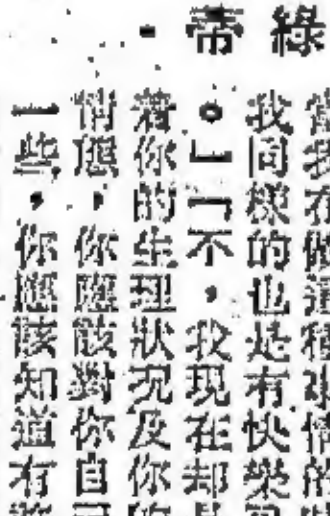 綠蒂
我在做這種
我同樣的也是有快樂
。」「不，我現在却
着你的生理狀况及你
情應，你應該對你自
一些，你應該知道有